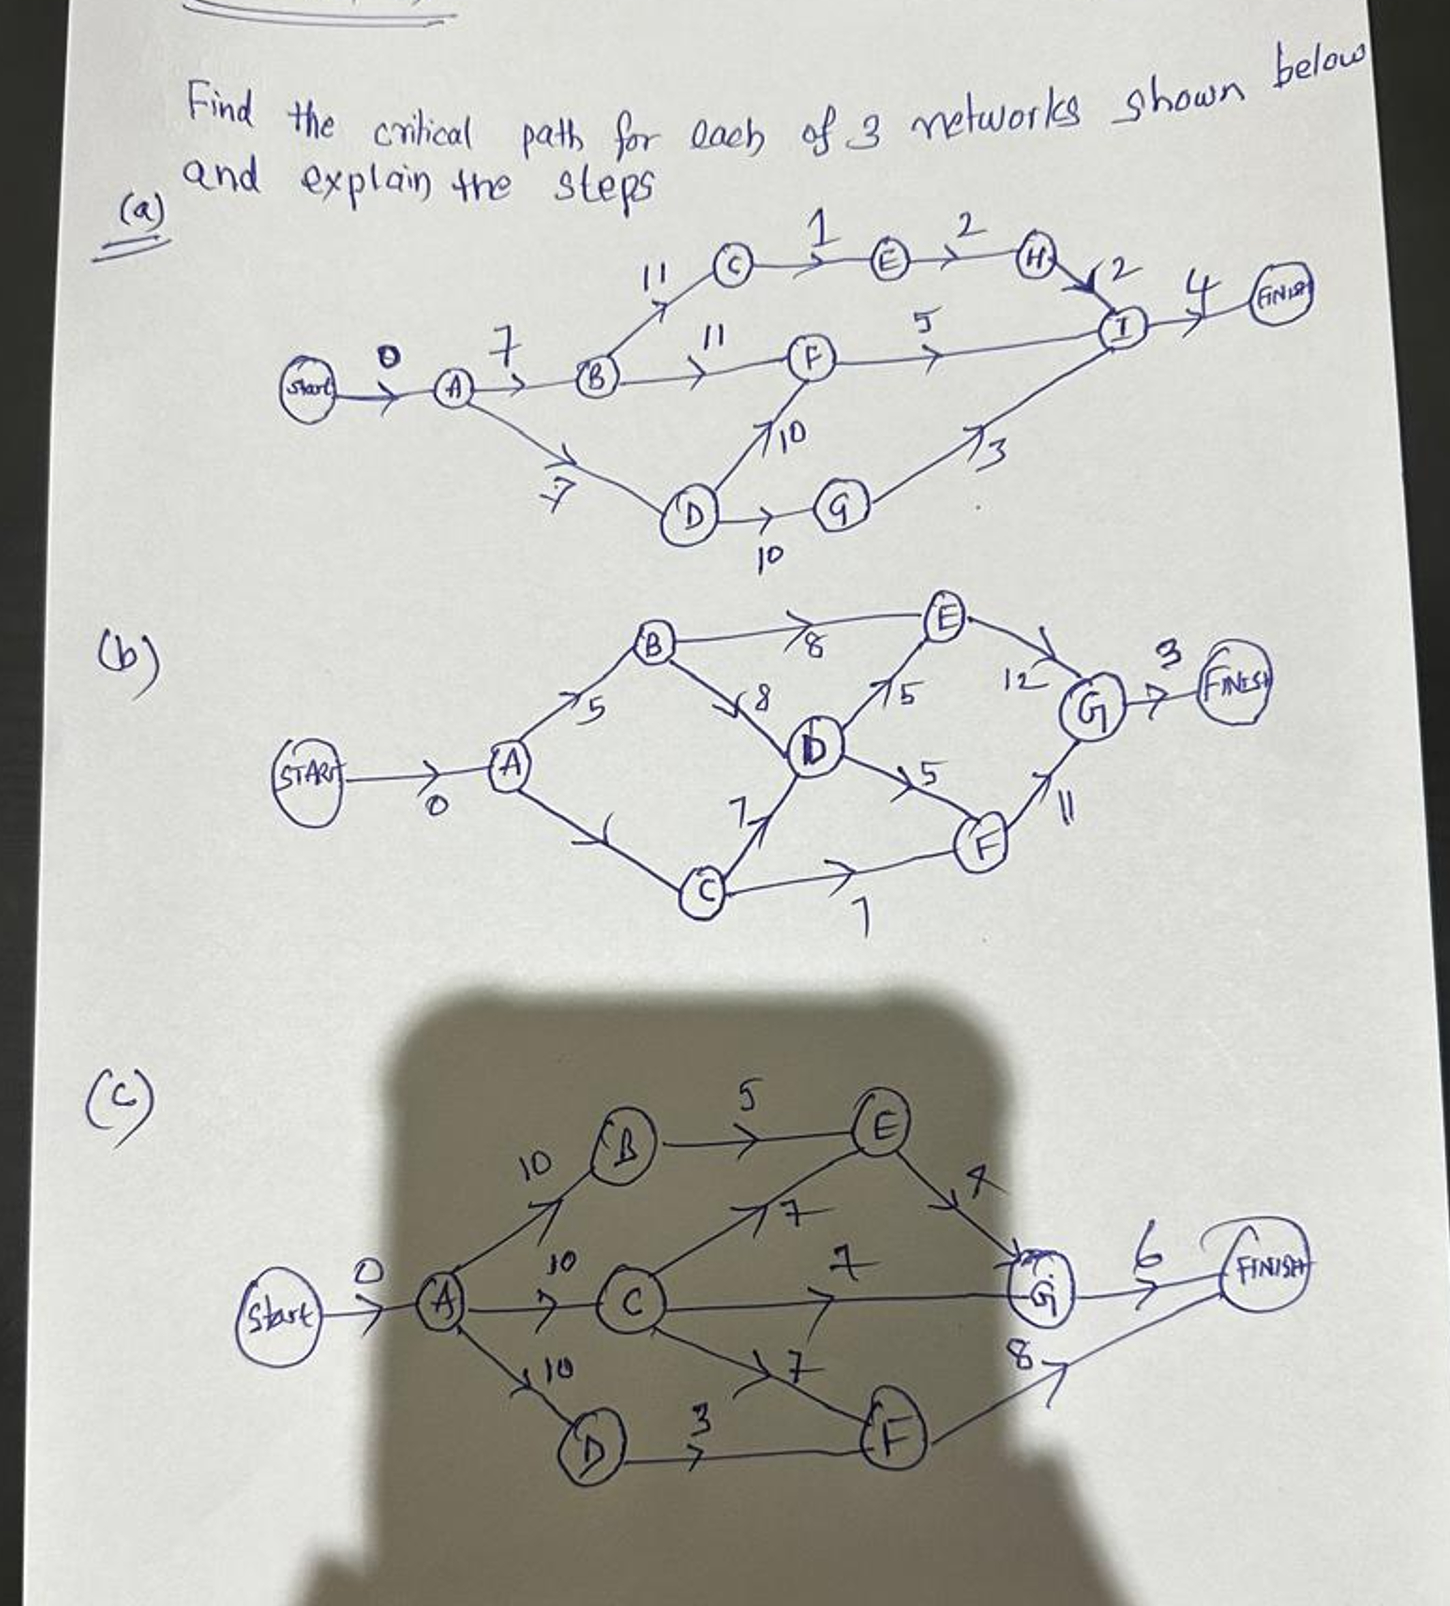 Find the critical path for each of 3 networks shown below
and explain the steps
(a)
C 1 E 2 H
11 2 4 FINISH
Start 0 A 7 B 11 F 5 I
7 10 3
D 10 G
(b)
B 8 E
5 8 5 12 G 3 FINISH
START 0 A D
7 5 11
C 7 F
(c)
B 5 E
10 7
Start 0 A 10 C 7 G 6 FINISH
10 7 8
D 3 F